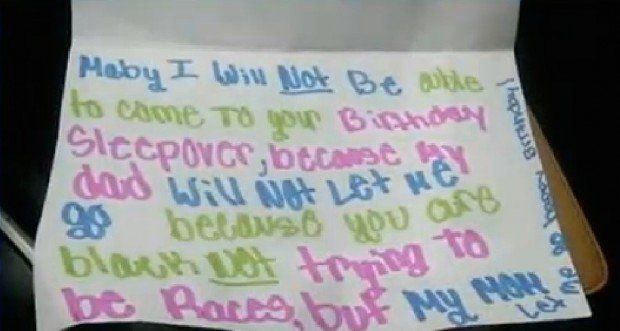 Maby I Will Not Be able
to come To your Birthday
Sleepover, because My
dad Will Not Let Me
go because you are
black Not trying to
be Races, but My MoM
Let me go
happy Birthday!